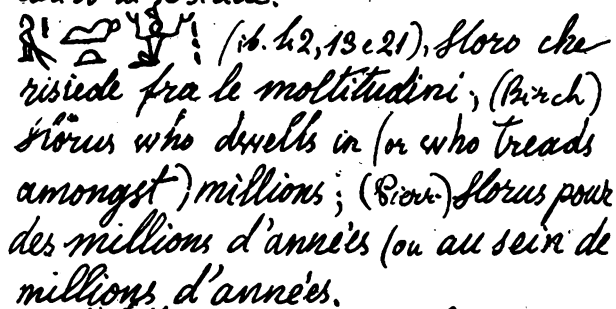 (ib. 42,19 e 21), Horo che
risiede fra le moltitudini; (Birch)
Hörus who dwells in (or who treads
amongst) millions; (Pierr.) Horus pour
des millions d'années (ou au sein de
millions d'années.